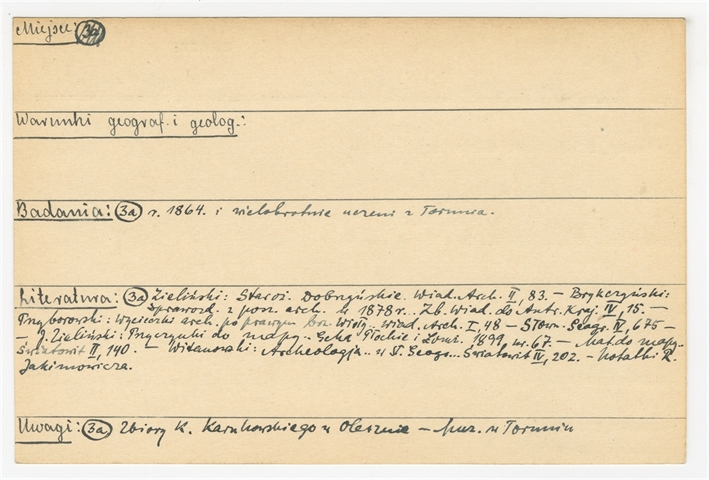 Miejsce:
Warunki geograf. i geolog.:
Badania: 3a r. 1864. i wielokrotnie uczeni z Torunia.
Literatura: 3a Zieliński: Staroż. Dobrzyńskie. Wiad. Arch. II, 83. — Brykczyński:
Sprawozd. z posz. arch. w 1878 r.. Zb. Wiad. do Antr. Kraj. IV, 15. —
Przyborowski: Wycieczki arch. po prawym brz. Wisły. Wiad. Arch. I, 48 — Słown. Geogr. IV, 675 —
— G. Zieliński: Przyczynki do mapy. Echa Płockie i Łomż. 1899, nr. 67. — Mat. do mapy..
Światowit II, 140. — Witanowski: Archeologja.. w Sł. Geogr... Światowit IV, 202. — Notatki R.
Jakimowicza.
Uwagi: 3a Zbiory K. Karnkowskiego w — Muz. w Toruniu